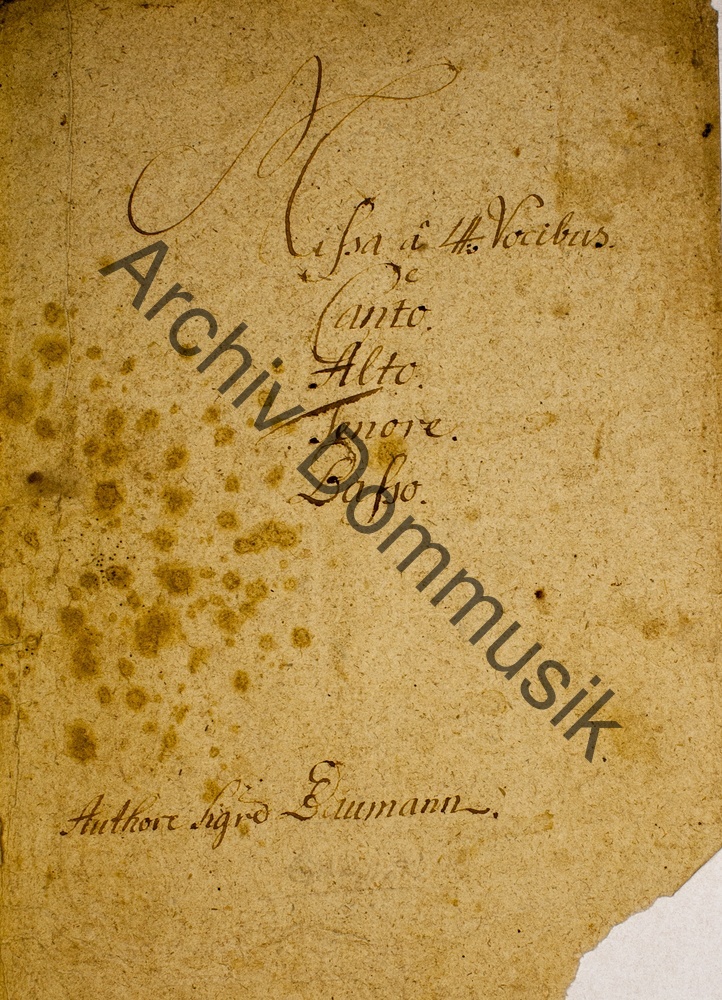 Missa â 4. Vocibus.
De
Canto.
Alto.
Tenore.
Basso.
Authore Sigre
Archiv Dommusik